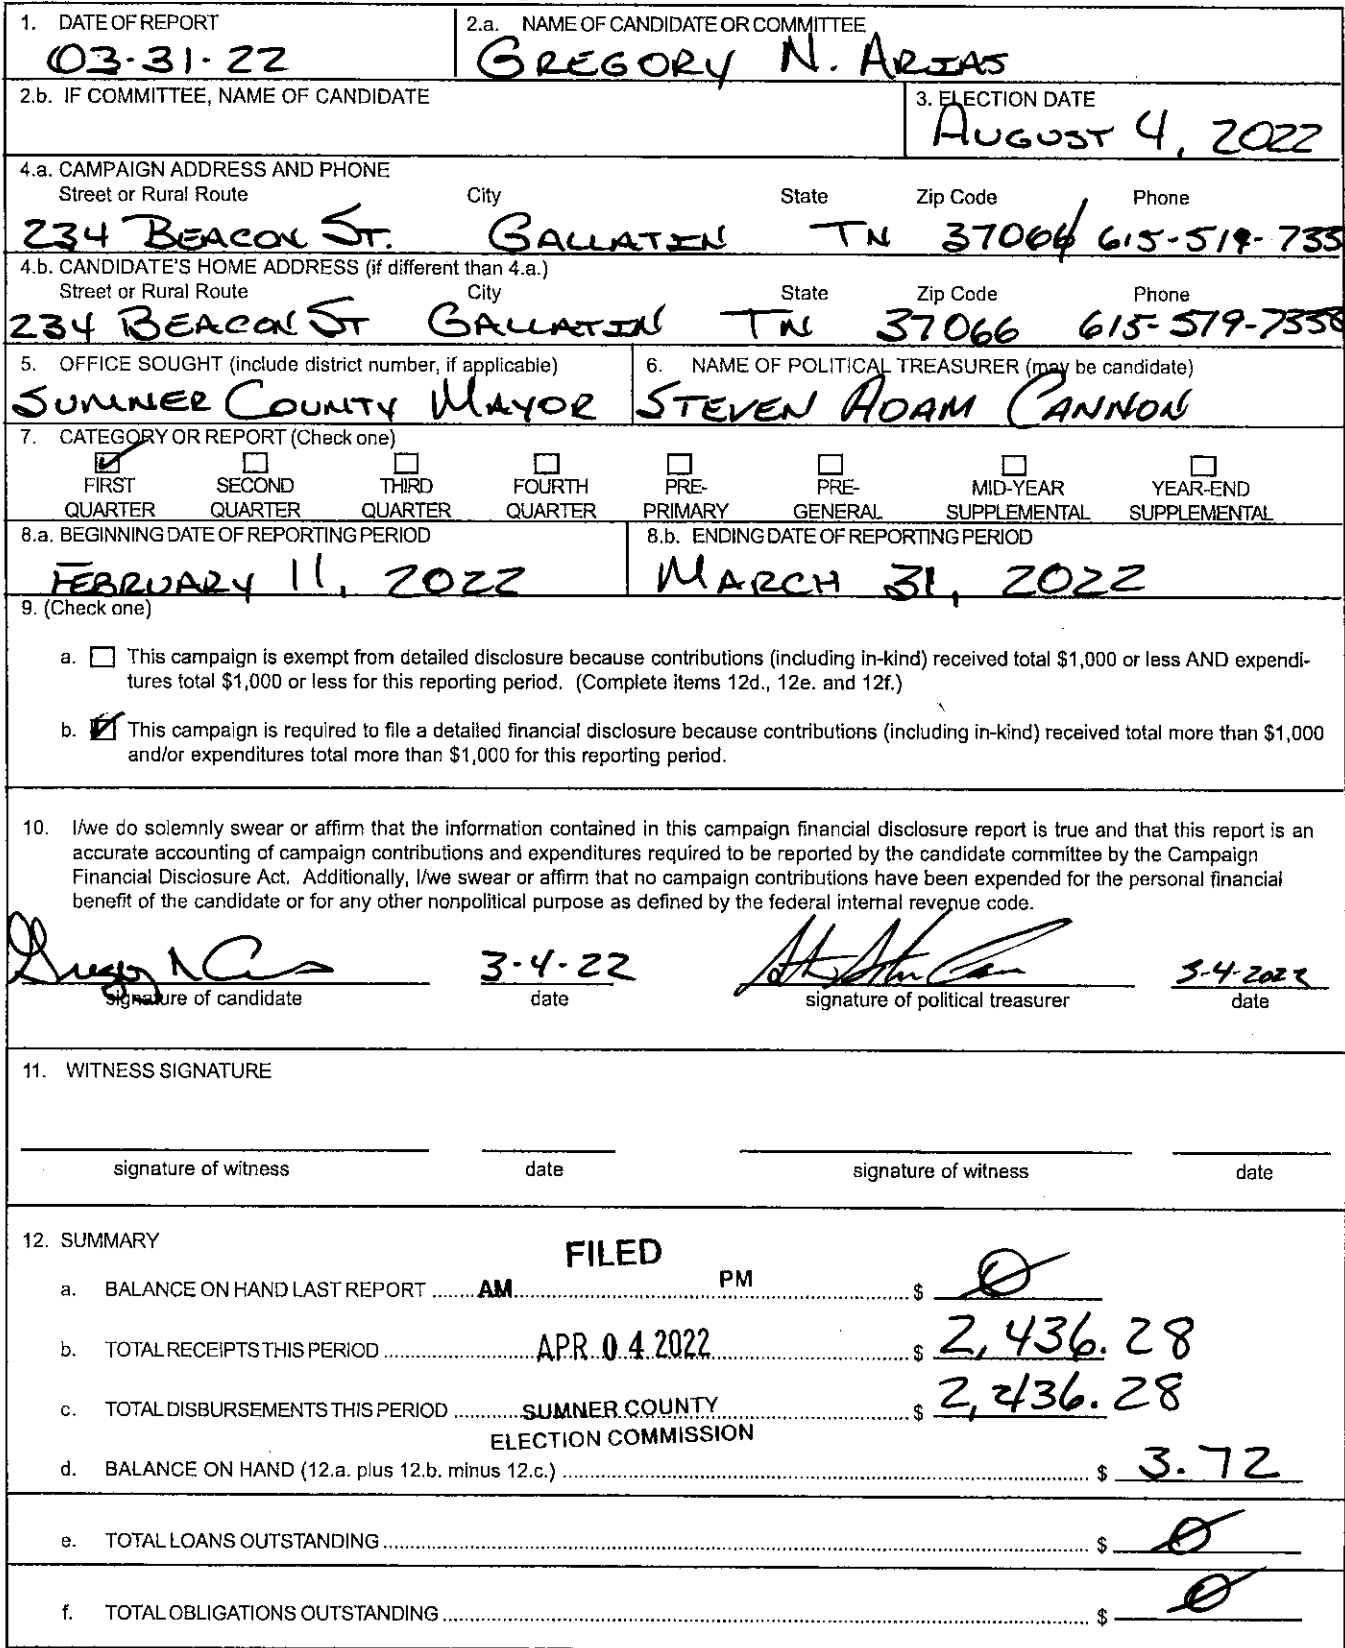 1. DATE OF REPORT
03-31-22
2.a. NAME OF CANDIDATE OR COMMITTEE
GREGORY N. ARIAS
2.b. IF COMMITTEE, NAME OF CANDIDATE
3. ELECTION DATE
AUGUST 4, 2022
4.a. CAMPAIGN ADDRESS AND PHONE
Street or Rural Route City State Zip Code Phone
234 BEACON ST. GALLATIN TN 37066 615-519-733
4.b. CANDIDATE'S HOME ADDRESS (if different than 4.a.)
Street or Rural Route City State Zip Code Phone
234 BEACON ST GALLATIN TN 37066 615-519-7338
5. OFFICE SOUGHT (include district number, if applicable)
SUMNER COUNTY MAYOR
6. NAME OF POLITICAL TREASURER (may be candidate)
STEVEN ADAM CANNON
7. CATEGORY OR REPORT (Check one)
FIRST QUARTER
SECOND QUARTER
THIRD QUARTER
FOURTH QUARTER
PRE-PRIMARY
PRE-GENERAL
MID-YEAR SUPPLEMENTAL
YEAR-END SUPPLEMENTAL
8.a. BEGINNING DATE OF REPORTING PERIOD
FEBRUARY 11, 2022
8.b. ENDING DATE OF REPORTING PERIOD
MARCH 31, 2022
9. (Check one)
a. This campaign is exempt from detailed disclosure because contributions (including in-kind) received total $1,000 or less AND expendi-
tures total $1,000 or less for this reporting period. (Complete items 12d., 12e. and 12f.)
b. This campaign is required to file a detailed financial disclosure because contributions (including in-kind) received total more than $1,000
and/or expenditures total more than $1,000 for this reporting period.
10. I/we do solemnly swear or affirm that the information contained in this campaign financial disclosure report is true and that this report is an
accurate accounting of campaign contributions and expenditures required to be reported by the candidate committee by the Campaign
Financial Disclosure Act. Additionally, I/we swear or affirm that no campaign contributions have been expended for the personal financial
benefit of the candidate or for any other nonpolitical purpose as defined by the federal internal revenue code.
3-4-22 3-4-2022
signature of candidate date signature of political treasurer date
11. WITNESS SIGNATURE
signature of witness date signature of witness date
12. SUMMARY
FILED
AM PM
a. BALANCE ON HAND LAST REPORT $ 0
b. TOTAL RECEIPTS THIS PERIOD APR 04 2022 $ 2,436.28
c. TOTAL DISBURSEMENTS THIS PERIOD SUMNER COUNTY $ 2,436.28
ELECTION COMMISSION
d. BALANCE ON HAND (12.a. plus 12.b. minus 12.c.) $ 3.72
e. TOTAL LOANS OUTSTANDING $ 0
f. TOTAL OBLIGATIONS OUTSTANDING $ 0